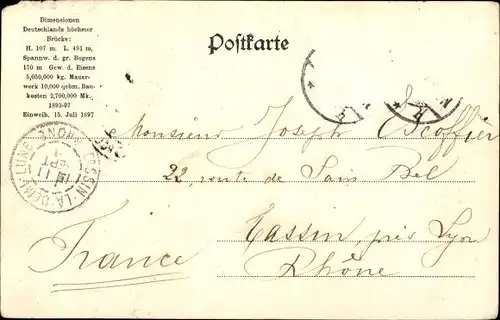 Dimensionen
Deutschlands höchster
Brücke:
H. 107 m. L. 491 m,
Spannw. d. gr. Bogens
170 m Gew. d. Eisens
5,000,000 kg. Mauer-
werk 10,000 qcbm. Bau-
kosten 2,700,000 Mk.
1893-97
Einweih. 15. Juli 1897
Postkarte
Monsieur Joseph Escoffier
22, route de Sain Bel
Tassin, près Lyon
Rhône
France
TASSIN-LA-DEMI-LUNE